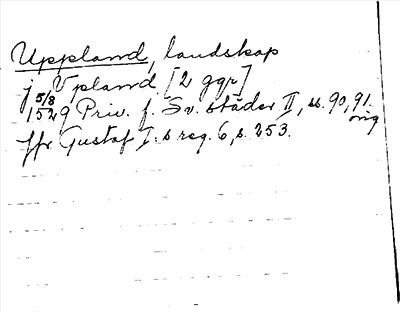 Uppland, landskap
j Vpland [2 ggr]
5/8 1529 Priv. f. Sv. städer II, ss. 90, 91. orig
jfr Gustaf I:s reg. 6, s. 253.